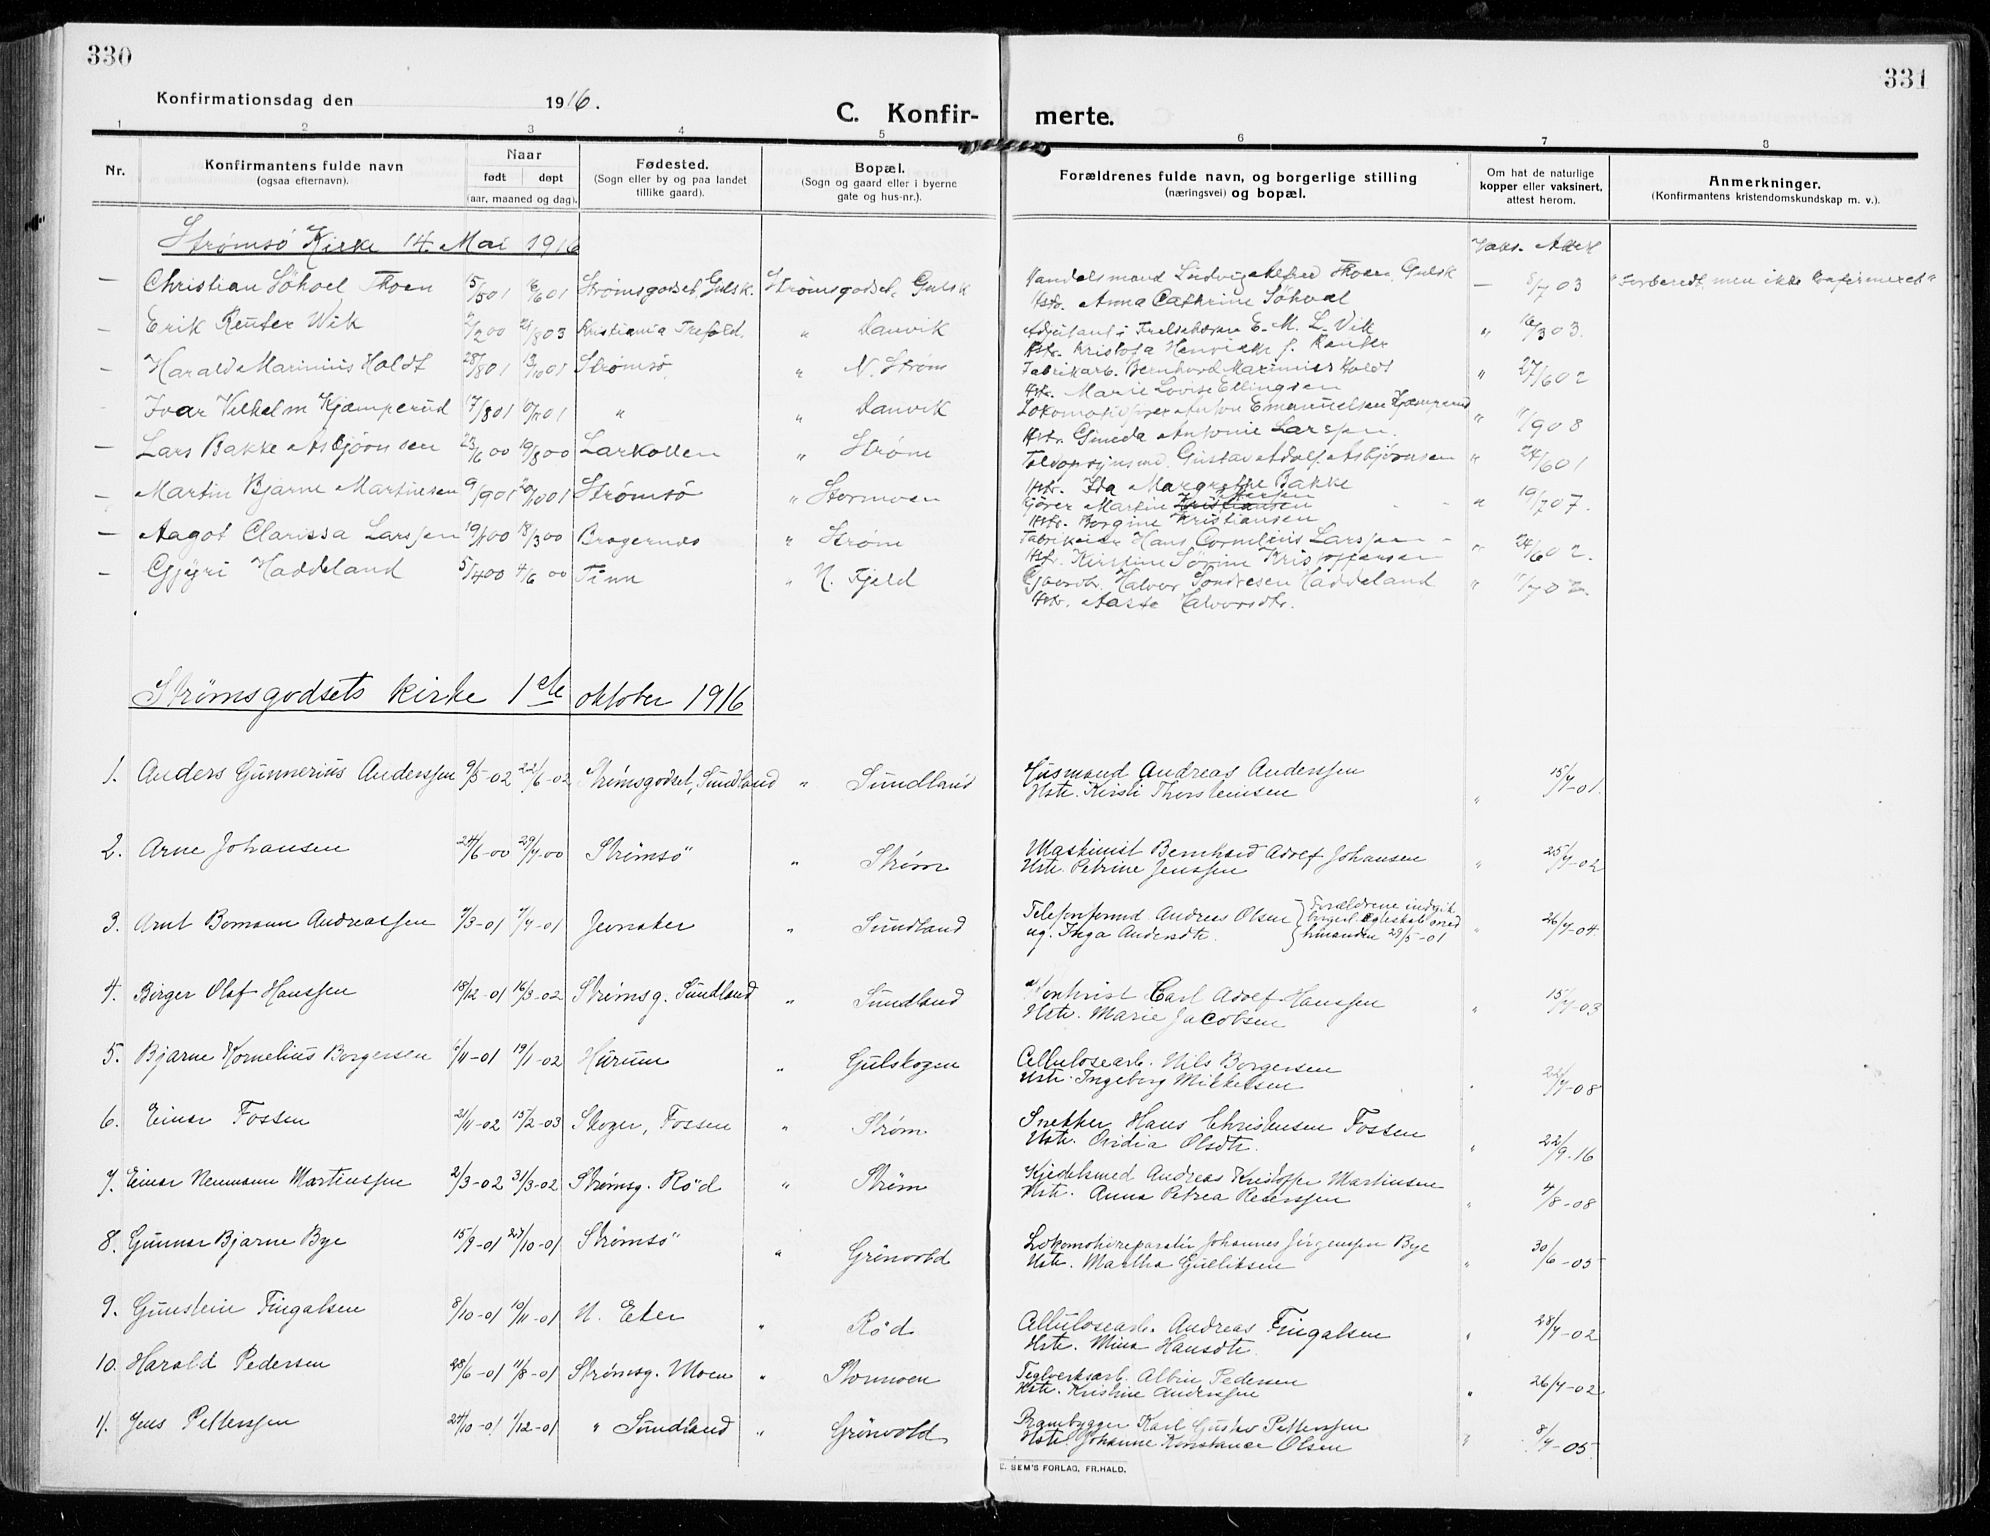 330
331
Konfirmationsdag den 1916.
C. Konfir- merte.
1 2 3 4 5 6 7 8
Nr. Konfirmantens fulde navn (ogsaa efternavn). Naar født døpt (aar, maaned og dag). Fødested. (Sogn eller by og paa landet tillike gaard). Bopæl. (Sogn og gaard eller i byerne gate og hus-nr.). Forældrenes fulde navn, og borgerlige stilling (næringsvei) og bopæl. Om hat de naturlige kopper eller vaksinert, attest herom. Anmerkninger. (Konfirmantens kristendomskundskap m. v.).
Strømsö Kirke 14. Mai 1916 Vaks. Attest
— Christian Söhoel Thoen 5/5 01 /6 01 Strømsgodset, Gulsk. Strømsgodset, Gulsk Handelsmand Ludvig Alfred Thoen, Gulsk — 8/7 03 "Forberedt, men ikke konfirmeret"
Hstr. Anna Cathrine Söhoel
— Erik Reuter Wik /2 00 2/8 03 Kristiania Trefold. " Danvik Adjutant i Frelsesarmeen E. M. L. Vik " 16/3 03.
Hstr. Kristofa Henriette f. Reuter
— Harald Marinius Holdt 28/8 01 13/10 01 Strømsö " N. Strøm Fabrikarb. Bernhard Marinius Holdt " 27/6 02
Hstr. Marie Lovise Ellingsen
— Ivar Vilhelm Kjæmperud 17/8 01 " " Danvik Lokomotivfører Anton Emanuelsen Kjæmperud " 11/9 08
Hstr. Gineda Antonie Larssen.
— Lars Bakke Asbjørnsen 23/6 00 19/8 00 Larkollen " Strøm Toldopsynsmd. Gustav Adolf Asbjørnsen " 24/6 01
Hstr. Ida Margrethe Bakke
— Martin Bjarne Martinsen 9/9 01 20/10 01 Strømsö " Stormoen Gjører Martin Kristiansen " 19/7 07.
Hstr. Borgine Kristiansen
— Aagot Clarissa Larssen 19/1 00 18/3 00 Bragernes " Strøm Fabrikeier Hans Cornelius Larssen " 24/6 02.
Hstr. Kirstine Sørine Kristoffersen
— Gjyri Haddeland 5/4 00 4/6 00 Tinn " N. Fjeld Gaardbr. Halvor Søndresen Haddeland " 11/7 02
Hstr. Aaste Halvorsdtr.
Strømsgodsets kirke 1ste oktober 1916
1. Anders Gunnerius Anderssen 9/5-02 22/6-02 Strømsgodset, Sundland " Sundland Husmand Andreas Anderssen " 15/7-01.
Hstr. Kirsti Thorsteinsen
2. Arne Johansen 24/6-00 29/7-00 Strømsö " Strøm Maskinist Bernhard Adolf Johansen " 25/7-02
Hstr. Petrine Jenssen
3. Arnt Bomann Andreassen 7/3-01 7/7-01 Jevnaker " Sundland Telefonformd. Andreas Olsen { Forældrene indgik " 26/7-04
ug. Inga Andersdtr. borgerl. Egteskab med hinanden 29/5-01
4. Birger Olaf Hanssen 18/12-01 16/3-02 Strømsg. Sundland " Sundland Kontrist Carl Adolf Hanssen " 15/7-03
Hstr. Marie Jacobsen
5. Bjarne Kornelius Borgersen 1/11-01 19/1-02 Hurum " Gulskogen Cellulosearb. Nils Borgersen " 22/7-08
Hstr. Ingeborg Mikkelsen
6. Einar Fossen 21/11-02 15/2-03 Skoger, Fossen " Strøm Snekker Hans Christensen Fossen " 22/9-16
Hstr. Ovidia Olsdtr.
7. Einar Neumann Martinssen 2/3-02 31/3-02 Strømsg. Röd " Strøm Kjedelsmed Andreas Kristoffer Martinsen " 4/8-08
Hstr. Anna Petrea Peterssen
8. Gunnar Bjarne Bye 15/9-01 27/10-01 Strømsö " Grönvold Lokomotivreparatör Johannes Jörgenssen Bye " 30/6-05
Hstr. Martha Gulliksen
9. Gunstein Fingalsen 8/10-01 10/11-01 N. Eker " Röd Cellulosearb. Andreas Fingalsen " 28/7-02
Hstr. Mina Hansdtr.
10. Harald Pedersen 28/6-01 11/8-01 Strømsg. Moen " Stormoen Teglverksarb. Albin Pedersen " 26/7-02
Hstr. Kristine Anderssen
11. Jens Petterssen 24/10-01 1/12-01 " Sundland " Grönvold Prambygger Karl Gustav Petterssen " 8/7-05
Hstr. Johanne Konstanse Olsen
E. SEM'S FORLAG, FR.HALD.